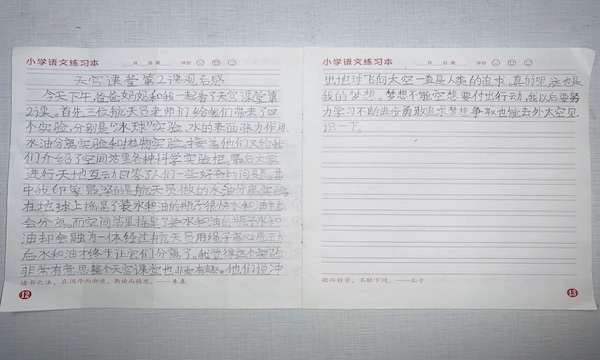 小学语文练习本
月 日 周 评价
天宫课堂第2课观后感
今天下午,爸爸妈妈和我一起看了天宫课堂第
2课。首先三位航天员老师们给我们带来了四
个实验,分别是“水球”实验、水的表面张力作用、
水油分离实验和植物实验,接着他们又给我
们介绍了空间站里各种科学实验柜。最后大家
进行天地互动回答了人们一些好奇的问题。其
中我印象最深的是航天员做的水油分离实验
在地球上摇晃了装水和油的瓶子很快水和油
会分离。而空间站里摇晃了装水和油的瓶子水和
油却会融为一体经过航天员用绳子离心
后,水和油才终于让它们分离了。我觉得这个实验
非常有意思整个天宫课堂也非常有趣。他们说冲
读书之法,在循序而渐进,熟读而精思。——朱熹
12
小学语文练习本
月 日 周 评价
出地球飞向太空一直是人类的追求,真的呢,这也是
我的梦想。梦想不能空想要付出行动,我以后要努
力学习不断进步勇敢追求梦想争取也能去外太空见
识一下。
敏而好学,不耻下问。——孔子
13